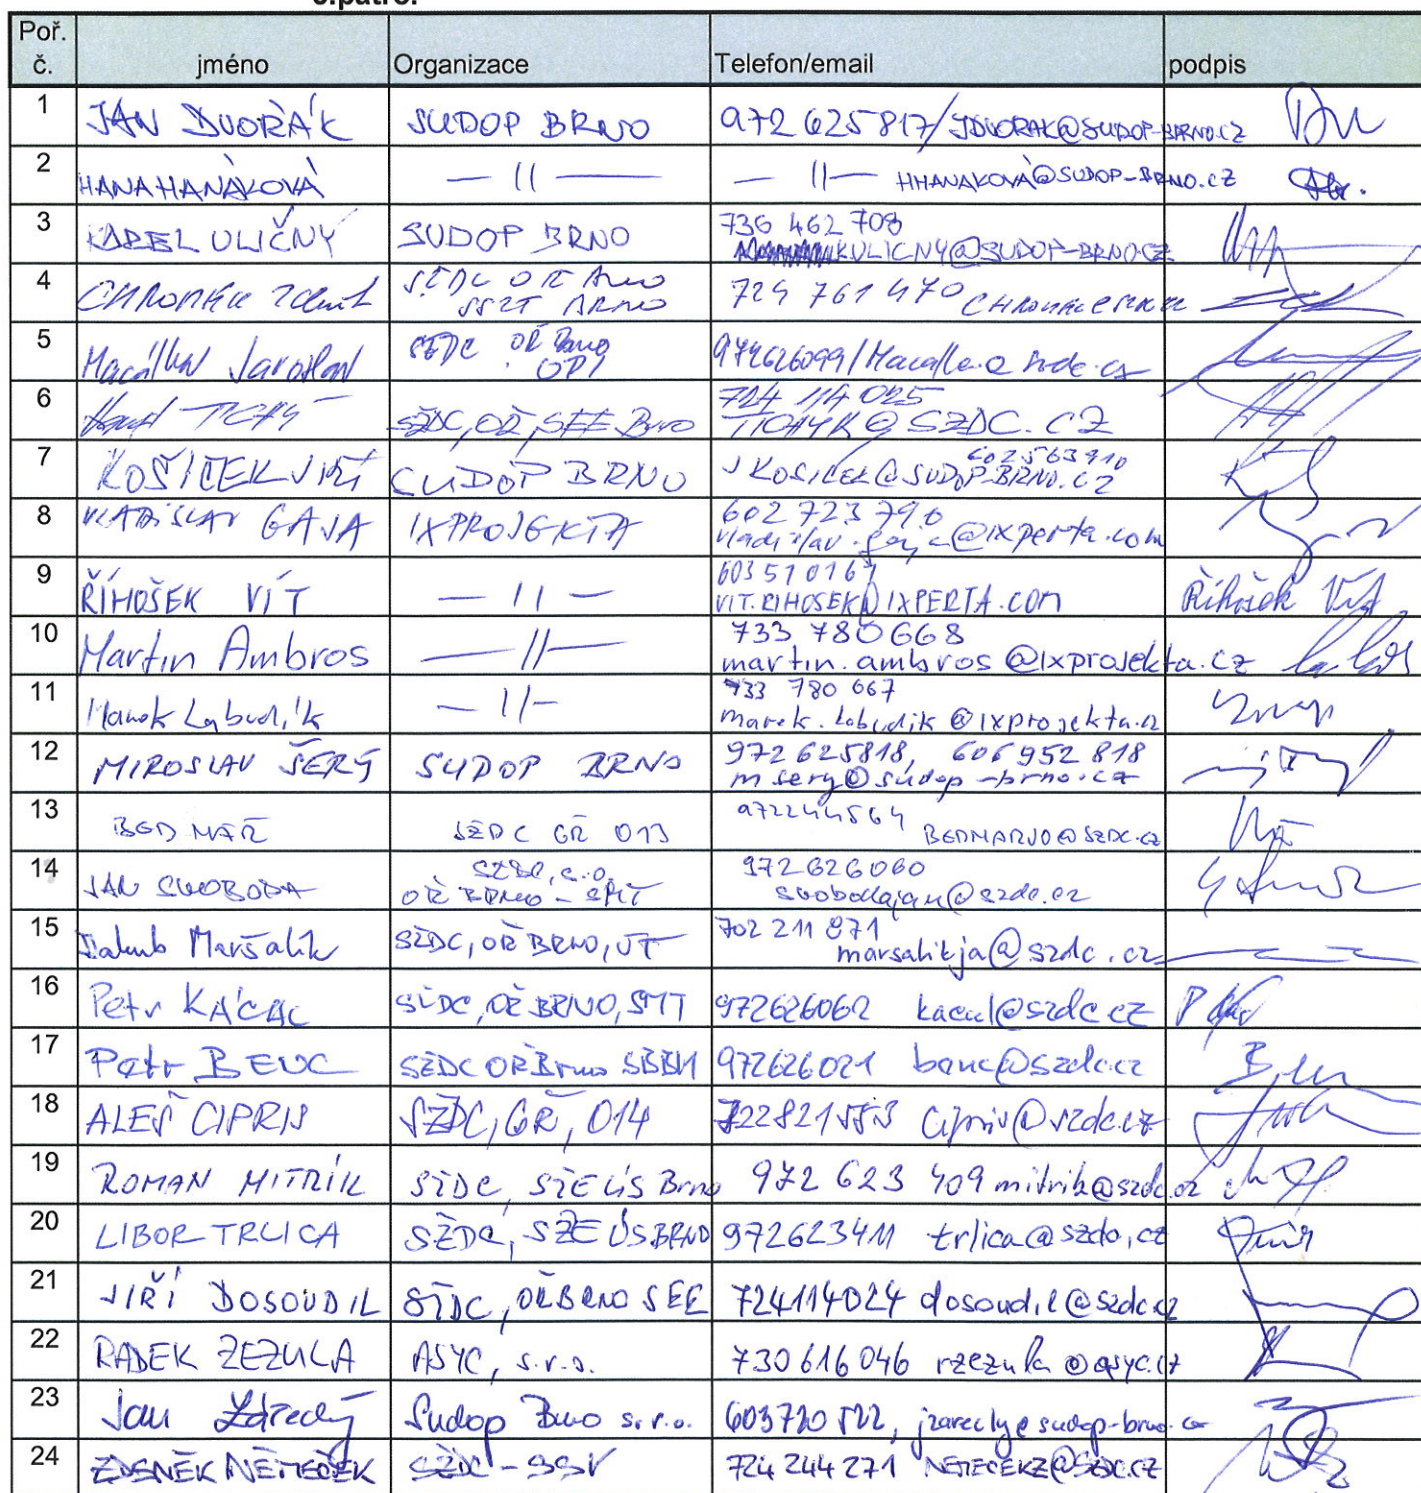 Poř.
č. jméno Organizace Telefon/email podpis
1 JAN DVOŘÁK SUDOP BRNO 972 625 817/JDVORAK@SUDOP-BRNO.CZ
2 HANA HANÁKOVÁ — 11 — — 11 — HHANAKOVA@SUDOP-BRNO.CZ
3 KAREL ULIČNÝ SUDOP BRNO 736 462 708
KULICNY@SUDOP-BRNO.CZ
4 SŽDC OŘ Brno 724 761 470
SSZT BRNO
5 Jaroslav SŽDC OŘ Brno 972626099/
6 TICHÝ SŽDC, OŘ, SEE Brno 724 114 025
TICHYK@SZDC.CZ
7 KOŠÍČEK JIŘÍ SUDOP BRNO 602563910
JKOSICEK@SUDOP-BRNO.CZ
8 VLADISLAV GAJA IXPROJEKTA 602 723 790
vladislav.gaja@ixperta.com
9 ŘÍHOŠEK VÍT — 11 — 603 510 161 Říhošek Vít
VIT.RIHOSEK@IXPERTA.COM
10 Martin Ambros — 11 — 733 780 668
martin.ambros@ixprojekta.cz
11 Marek Labudík — 11 — 733 780 667
marek.labudik@ixprojekta.cz
12 MIROSLAV ŠERÝ SUDOP BRNO 972 625818, 606 952 818
msery@sudop-brno.cz
13 BEDNÁŘ SŽDC GŘ 013 972244564
BEDNARJO@SZDC.CZ
14 JAN SVOBODA SŽDC, s.o. 972 626 060
OŘ BRNO - SMT svobodajan@szdc.cz
15 Jakub Maršálik SŽDC, OŘ BRNO, ÚT 702 211 871
marsalikja@szdc.cz
16 Petr KÁČAL SŽDC, OŘ BRNO, SMT 972626062 kacal@szdc.cz
17 Petr BENC SŽDC OŘ Brno SBBH 972626021 benc@szdc.cz
18 ALEŠ CIPRIS SŽDC, GŘ, 014 722821553 cipris@szdc.cz
19 ROMAN MITRÍK SŽDC, SŽE ÚS Brno 972 623 409 mitrik@szdc.cz
20 LIBOR TRLICA SŽDC, SŽE ÚS BRNO 972623411 trlica@szdc.cz
21 JIŘÍ DOSOUDIL SŽDC, OŘ BRNO SEE 724114024 dosoudil@szdc.cz
22 RADEK ZEZULA ASYC, s.r.o. 730 616 046 rzezula@asyc.cz
23 Jan Zárecký Sudop Brno s.r.o. 603720522, jzarecky@sudop-brno.cz
24 ZDENĚK NETEČEK SŽDC - SSV 724 244 271 NETECEKZ@SZDC.CZ